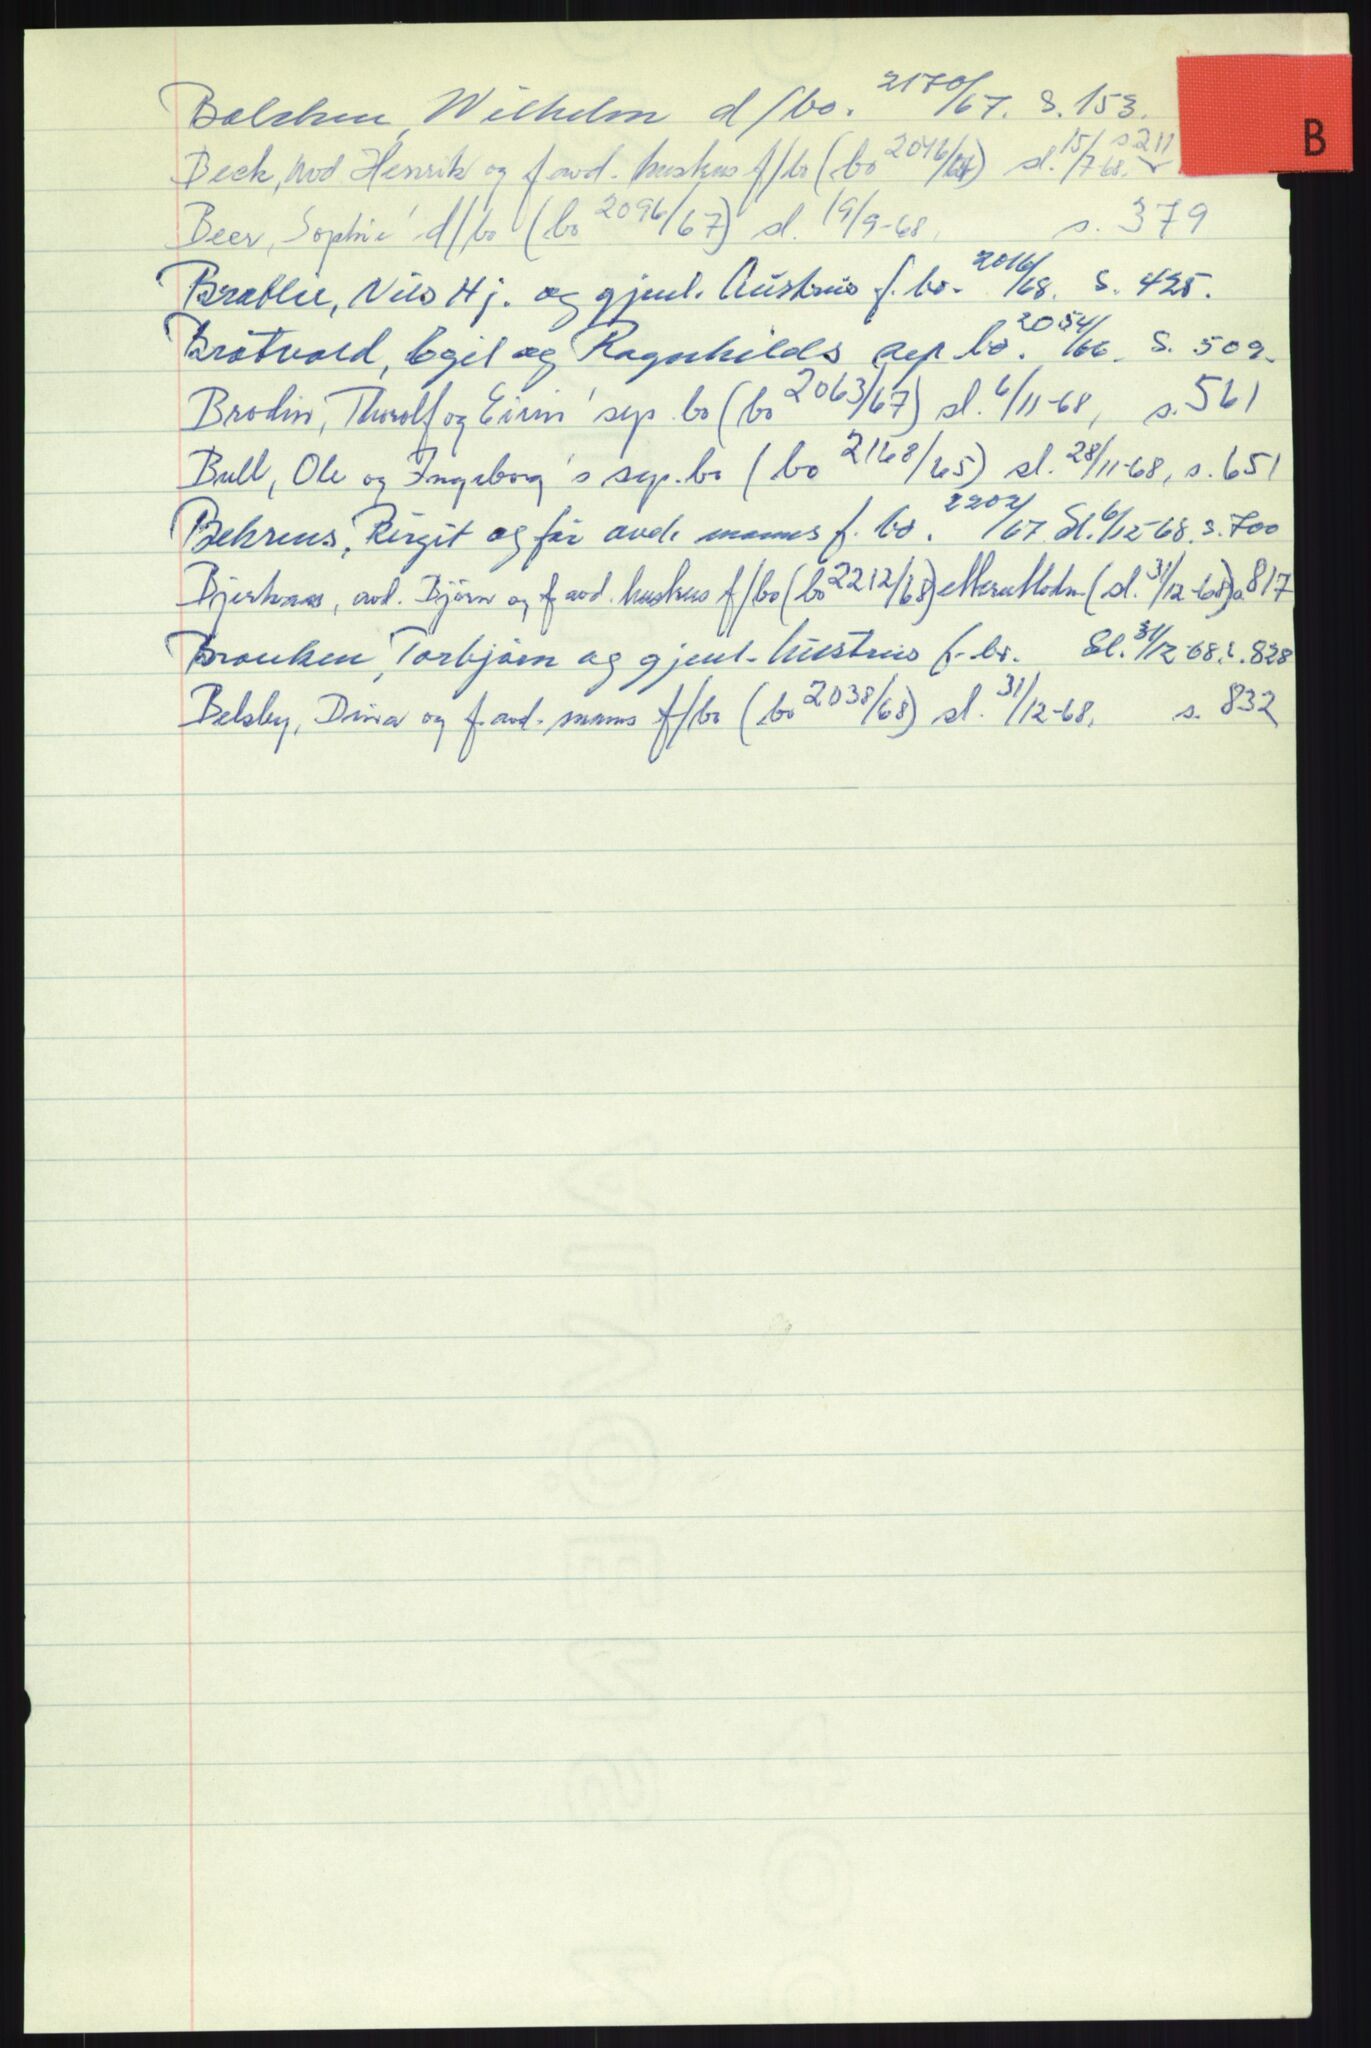 B
Balchen, Wilhelm d/bo. 2170/67. S. 153.
Beck, avd Henrik og f. avd. hustrus f/bo (bo 2046/68) sl. 15/7-68. s 211
Beer, Sophie' d/bo (bo 2096/67) sl. 19/9-68, s. 379
Bratlie, Nils Hj. og gjenl. hustrus f. bo. 2016/68. S. 425.
Bråtvold, Egil og Ragnhilds sep. bo. 2054/66. S. 509.
Brodin, Thorolf og Eirin' sep. bo (bo 2063/67) sl. 6/11-68, s. 561
Bull, Ole og Ingeborg's sep. bo (bo 2168/65) sl. 28/11-68, s. 651
Behrens, Birgit og før avd. manns f. bo. 2202/67 Sl. 6/12-68. s. 700
avd. Bjørn og f. avd. hustrus f/bo (bo 2212/68) (sl. 31/12-68) s. 817
Torbjørn og gjenl. hustrus f. bo. Sl. 31/12-68. s. 828
Belsby, Dina og f. avd. manns f/bo (bo 2038/68) sl. 31/12-68, s. 832